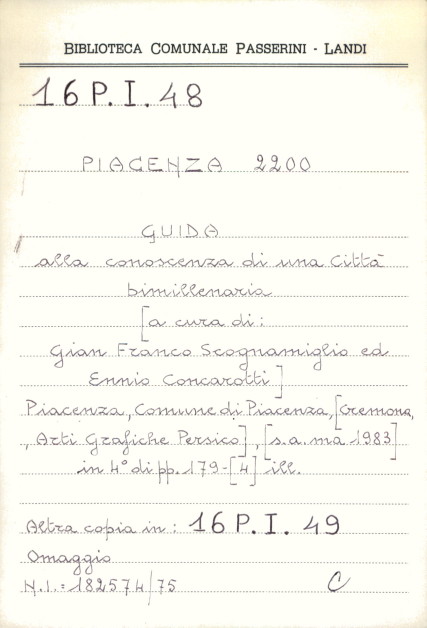 BIBLIOTECA COMUNALE PASSERINI - LANDI
16 P. I. 48
PIACENZA 2200
GUIDA
alla conoscenza di una Città
bimillenaria
[a cura di:
Gian Franco Scognamiglio ed
Ennio Concarotti]
Piacenza, Comune di Piacenza, [Cremona,
, Arti Grafiche Persico], [s.a. ma 1983]
in 4° di pp. 179-[4] ill.
Altra copia in: 16 P. I. 49
Omaggio
N.I.= 182574/75 C